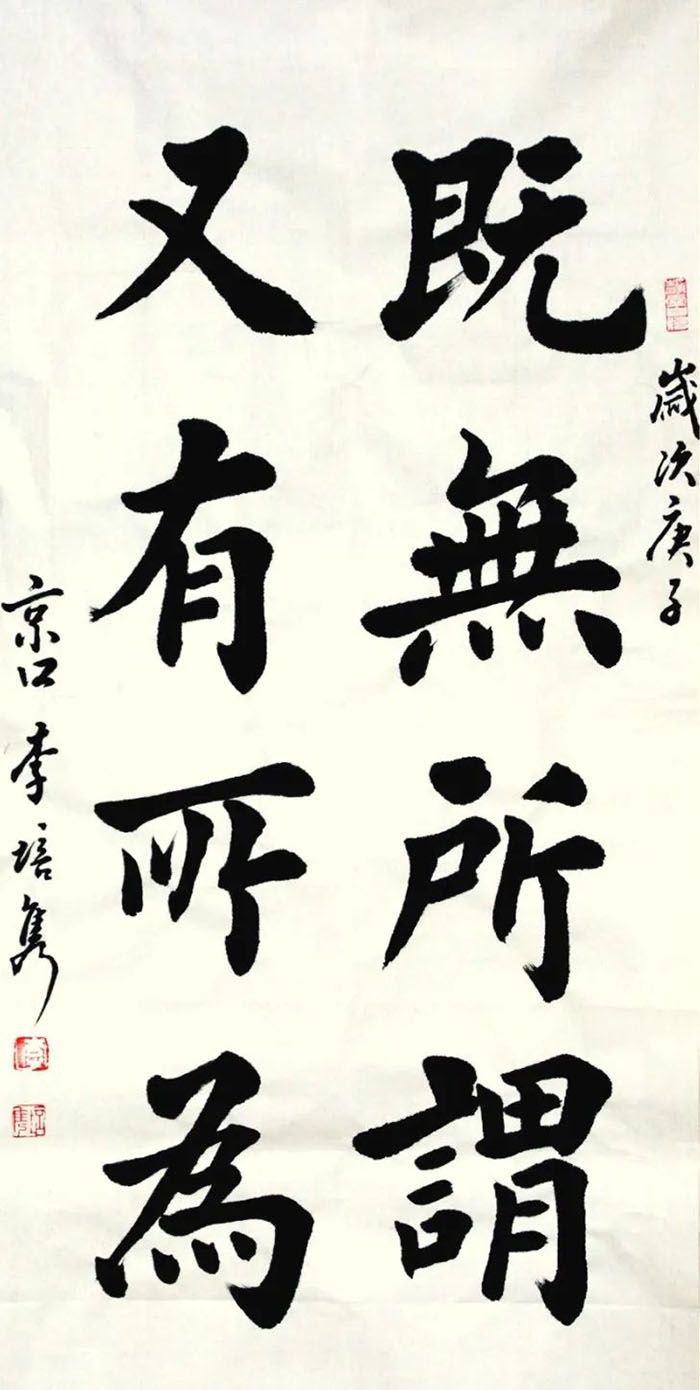 歲次庚子
既無所謂
又有所為
京口李培雋